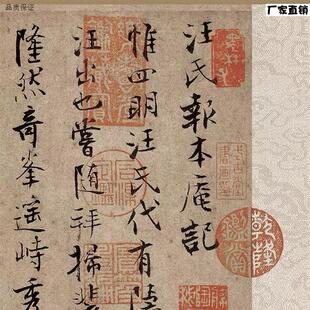 品质保证
厂家直销
汪氏報本庵記
惟四明汪氏代有隱
汪出也嘗隨拜掃
隆然奇峯遥峙秀
乾隆鑒賞